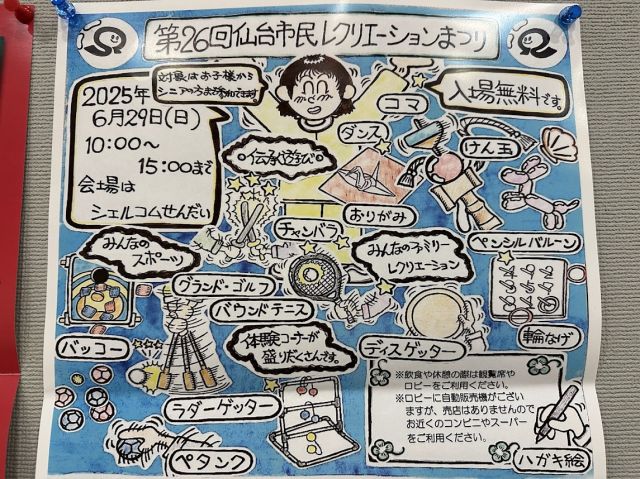 第26回仙台市民レクリエーションまつり
対象はお子様から
シニアの方まで参加できます
2025年
6月29日(日)
10:00～
15:00まで
会場は
シェルコムせんだい
入場無料です。
コマ
ダンス
けん玉
伝承遊び
おりがみ
チャンバラ
ペンシルバルーン
みんなの
スポーツ
みんなのファミリー
レクリエーション
グランド・ゴルフ
バウンドテニス
バッコー
体験コーナーが
盛りだくさんです。
ディスゲッター
輪なげ
ラダーゲッター
ペタンク
※飲食や休憩の際は観覧席や
ロビーをご利用ください。
※ロビーに自動販売機がござい
ますが、売店はありませんので
お近くのコンビニやスーパー
をご利用ください。
ハガキ絵